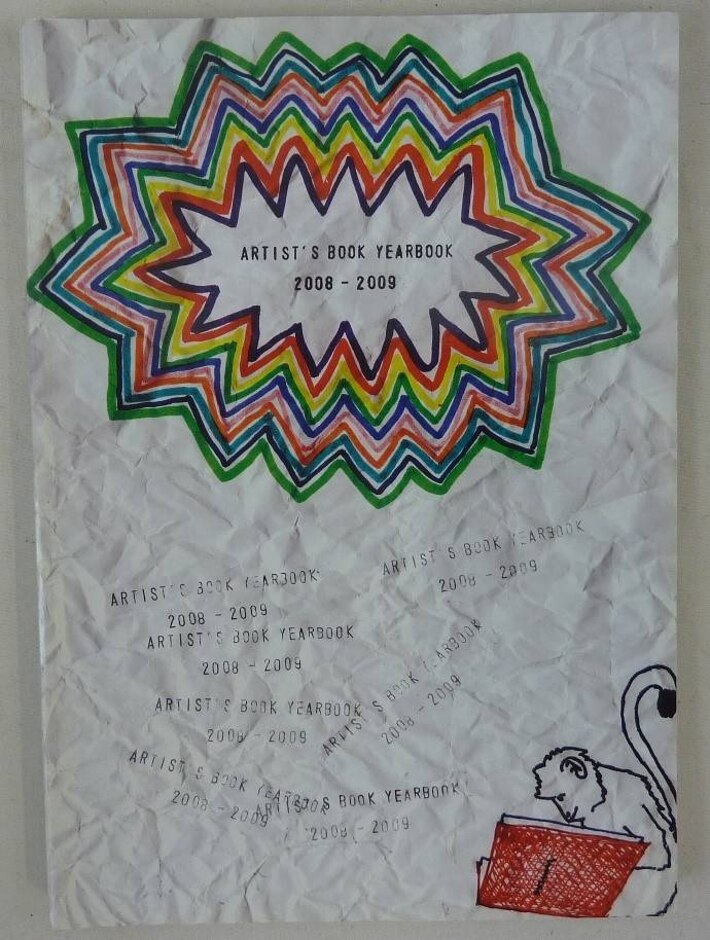 ARTIST'S BOOK YEARBOOK
2008 - 2009
ARTIST'S BOOK YEARBOOK
2008 - 2009
ARTIST'S BOOK YEARBOOK
2008 - 2009
ARTIST'S BOOK YEARBOOK
2008 - 2009
ARTIST'S BOOK YEARBOOK
2008 - 2009
ARTIST'S BOOK YEARBOOK
2008 - 2009
ARTIST'S BOOK YEARBOOK
2008 - 2009
ARTIST'S BOOK YEARBOOK
2008 - 2009